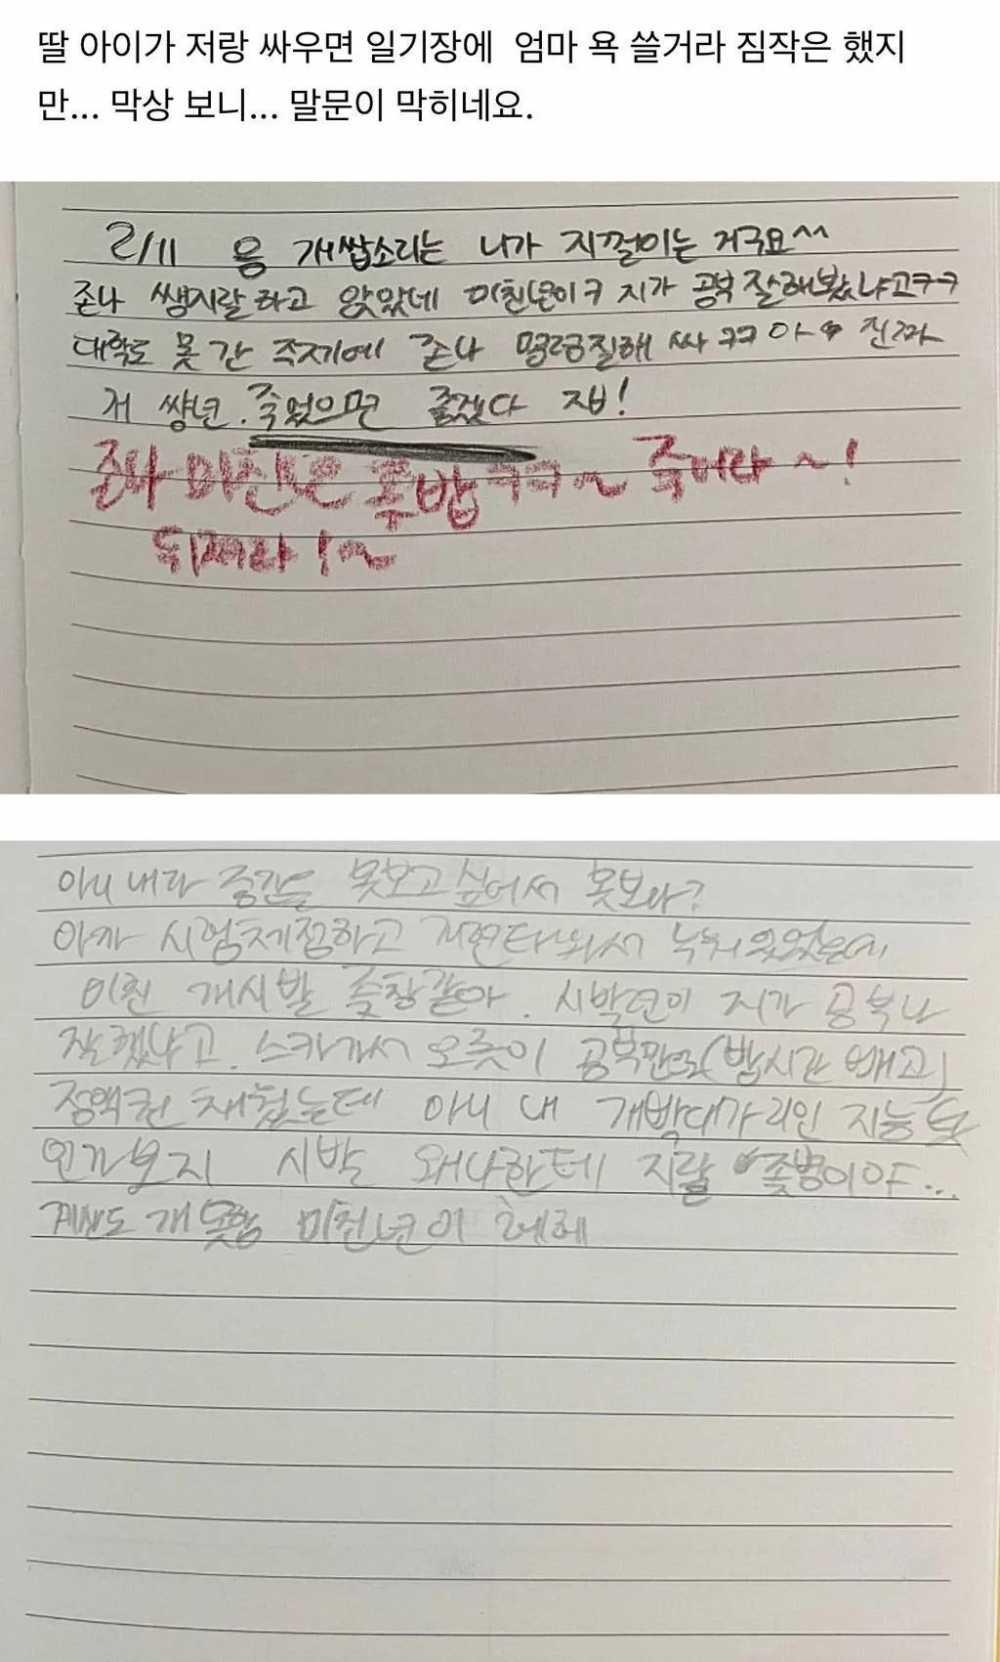 딸 아이가 저랑 싸우면 일기장에 엄마 욕 쓸거라 짐작은 했지
만... 막상 보니... 말문이 막히네요.
2/11 응 개쌉소리는 니가 지껄이는 거구요^^
존나 쌩지랄하고 앉았네 미친년이ㅋ 지가 공부 잘해봤냐고ㅋㅋ
대학도 못 간 주제에 존나 명령질해 싸 ㅋㅋ 아 진짜
저 썅년. 죽었으면 좋겠다 ㅈㅂ!
존나 미친년 좆밥ㅋㅋㅋ~ 죽어라~!
뒤져라!~
아니 내라 중간을 못보고싶어서 못보냐?
아까 시험채점하고 현타와서 누워있었는데
미친 개시발 좆창같아. 시발년이 지가 공부나
잘했냐고. 스카가서 오롯이 공부만으로(밥시간 빼고)
정액권 채웠는데 아니 내 개빡대가리인 지능
인가보지 시발 왜나한테 지랄 좆병이야...
계산도 개못함 미친년이 헤헤